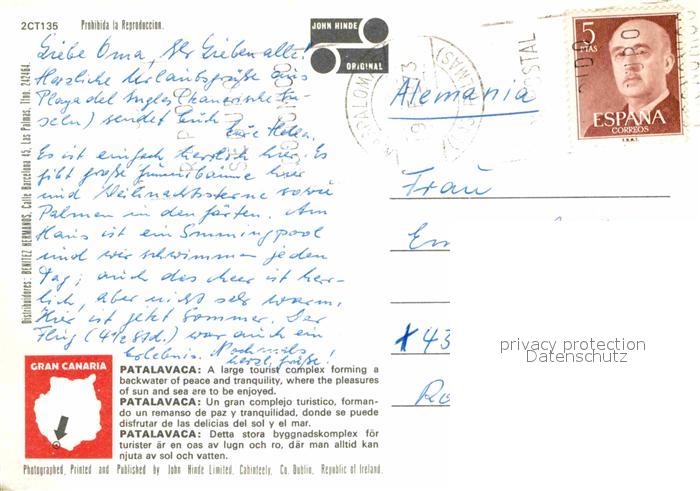 2CT135 Prohibida la Reproduccion.
JOHN HINDE
ORIGINAL
5
PTAS
ESPAÑA
CORREOS
Liebe Oma, Ihr Lieben alle!
Herzliche Urlaubsgrüße aus
Playa del Ingles (Kanarische In-
seln) sendet Euch
Eure
Es ist einfach herrlich hier. Es
gibt große Gummibäume hier
und Weihnachtssterne sowie
Palmen in den Gärten. Am
Haus ist ein Swimmingpool
und wir schwimmen jeden
Tag; auch das Meer ist herr-
lich, aber nicht sehr warm.
Hier ist jetzt Sommer. Der
Flug (4½ Std.) war auch ein
Erlebnis. Nochmals
herzl. Grüße!
Alemania
Frau
Em
43
privacy protection
Datenschutz
Distribuidores: BENITEZ HERMANOS, Calle Barcelona 45, Las Palmas, Tfno. 242464.
GRAN CANARIA
PATALAVACA: A large tourist complex forming a
backwater of peace and tranquility, where the pleasures
of sun and sea are to be enjoyed.
PATALAVACA: Un gran complejo turistico, forman-
do un remanso de paz y tranquilidad, donde se puede
disfrutar de las delicias del sol y el mar.
PATALAVACA: Detta stora byggnadskomplex för
turister är en oas av lugn och ro, där man alltid kan
njuta av sol och vatten.
Photographed, Printed and Published by John Hinde Limited, Cabinteely, Co. Dublin, Republic of Ireland.